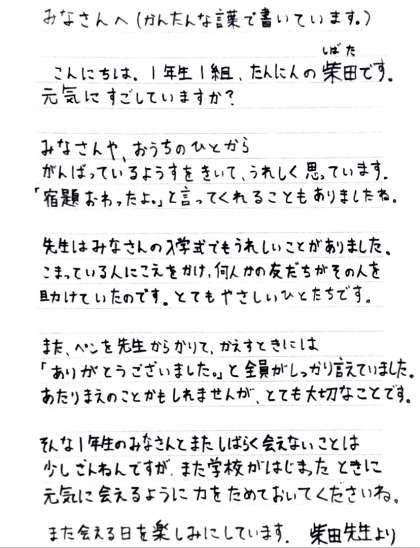 みなさんへ(かんたんな言葉で書いています。)
こんにちは。1年生1組、たんにんの柴田です。
しばた
元気にすごしていますか？
みなさんや、おうちのひとから
がんばっているようすをきいて、うれしく思っています。
「宿題おわったよ。」と言ってくれることもありましたね。
先生はみなさんの入学式でもうれしいことがありました。
こまっている人にこえをかけ、何人かの友だちがその人を
助けていたのです。とてもやさしいひとたちです。
また、ペンを先生からかりて、かえすときには
「ありがとうございました。」と全員がしっかり言えていました。
あたりまえのことかもしれませんが、とても大切なことです。
そんな1年生のみなさんとまたしばらく会えないことは
少しざんねんですが、また学校がはじまったときに
元気に会えるように力をためておいてくださいね。
また会える日を楽しみにしています。 柴田先生より